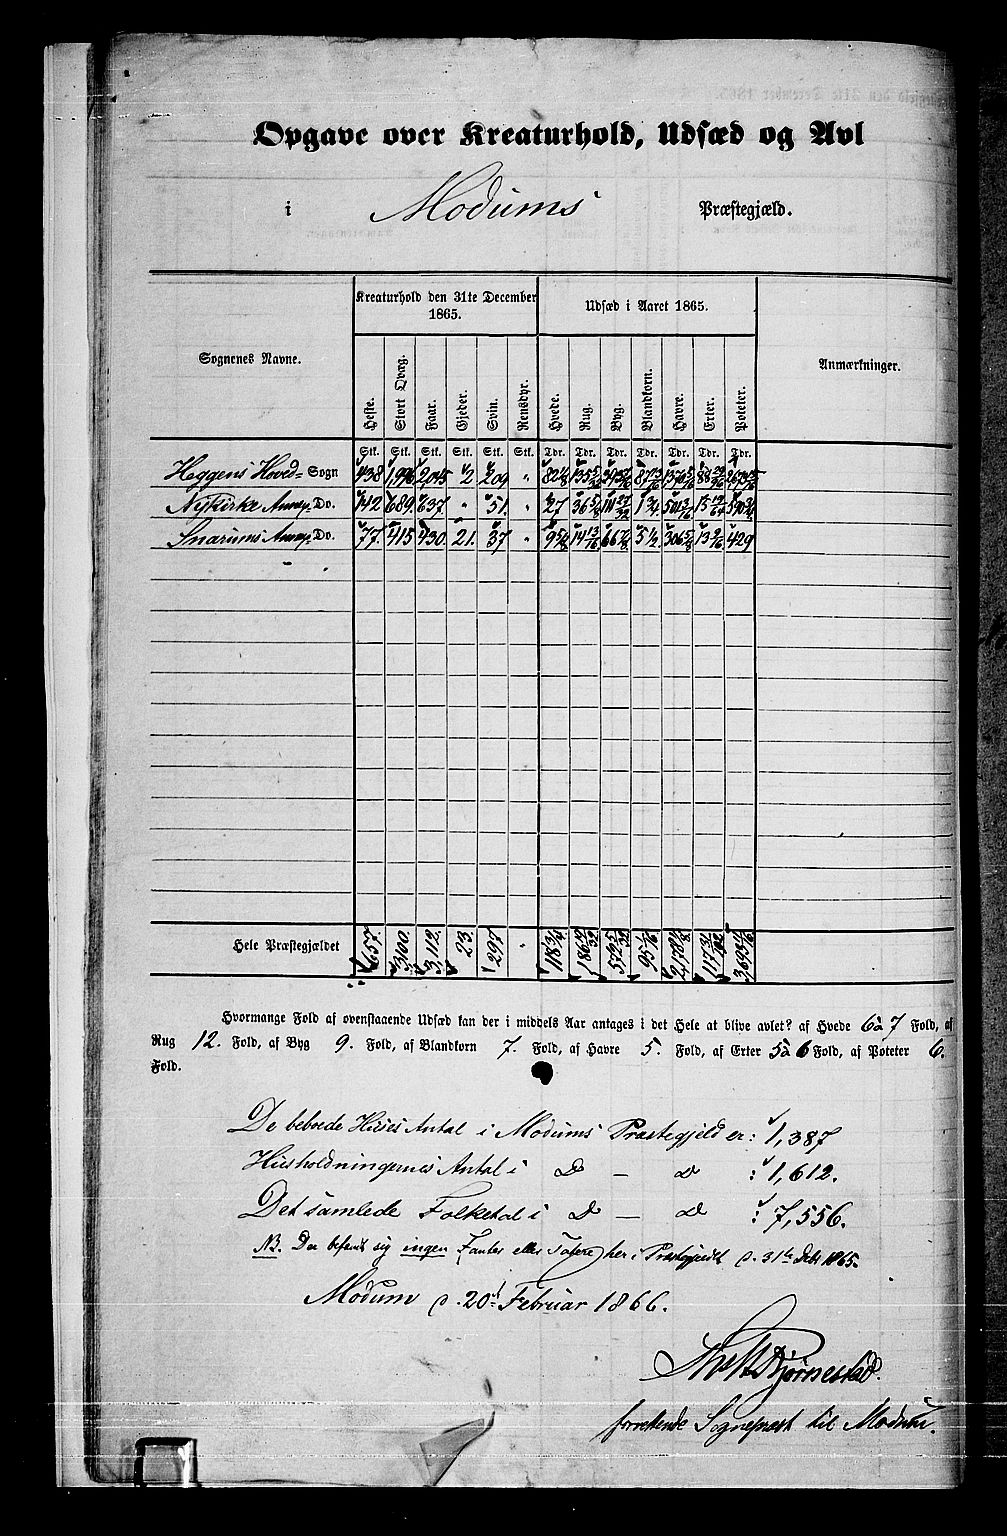 Opgave over Kreaturhold, Udsæd og Avl
i Modums Præstegjæld.
Sognenes Navne. Kreaturhold den 31te December 1865. Udsæd i Aaret 1865. Anmærkninger.
Heste. Stort Qvæg. Faar. Gjeder. Svin. Rensdyr. Hvede. Rug. Byg. Blandkorn. Havre. Erter. Poteter.
Stk. Stk. Stk. Stk. Stk. Stk. Tdr. Tdr. Tdr. Tdr. Tdr. Tdr. Tdr.
Heggens Hoved- Sogn 438 1,996 2,045 2 209 "
Nykirke Annex Do. 142 689 637. " 51. " 27 36 5/8
Snarums Annex Do. 77. 415 430. 21. 37 " 9 5/8 14 13/16 66 7/8 5 1/2 306 5/8 13 9/16 429
Hele Præstegjældet 657. 3,100 3,112. 23. 297 "
Hvormange Fold af ovenstaaende Udsæd kan der i middels Aar antages i det Hele at blive avlet? af Hvede 6 à 7 Fold, af
Rug 12. Fold, af Byg 9. Fold, af Blandkorn 7. Fold, af Havre 5. Fold, af Erter 5 à 6 Fold, af Poteter 6.
Fold.
De beboede Huses Antal i Modums Præstegjeld er: 1,387
Husholdningernes Antal i D — D : 1,612.
Det samlede Folketal i D — D : 7,556.
NB. Der befandt sig ingen Fanter eller Tatere her i Præstegjeldet d. 31te Decb. 1865.
Modum d. 20de Februar 1866.
Bjørnestad.
Sognepræst til Modum.